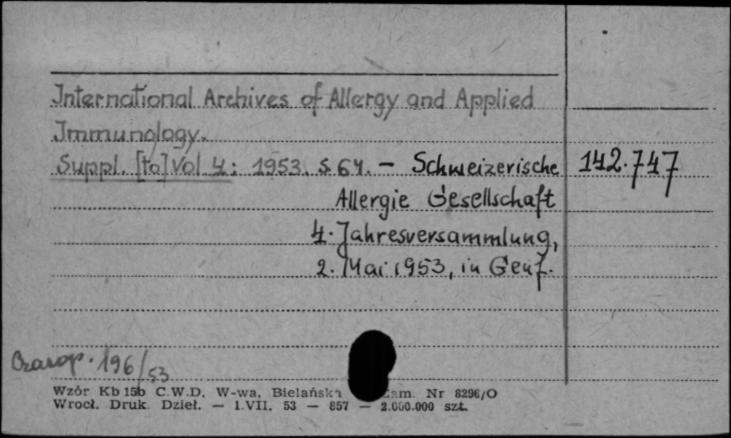 International Archives of Allergy and Applied
Immunology.
Suppl. [to] Vol 4: 1953. S 64. — Schweizerische 142.747
Allergie Gesellschaft
4. Jahresversammlung,
2. Mai 1953, in Genf.
Czasop. 196/53
Wzór Kb 15b C.W.D. W-wa, Bielańska Zam. Nr 8296/O
Wrocł. Druk. Dzieł. — 1.VII. 53 — 857 — 2.000.000 szt.